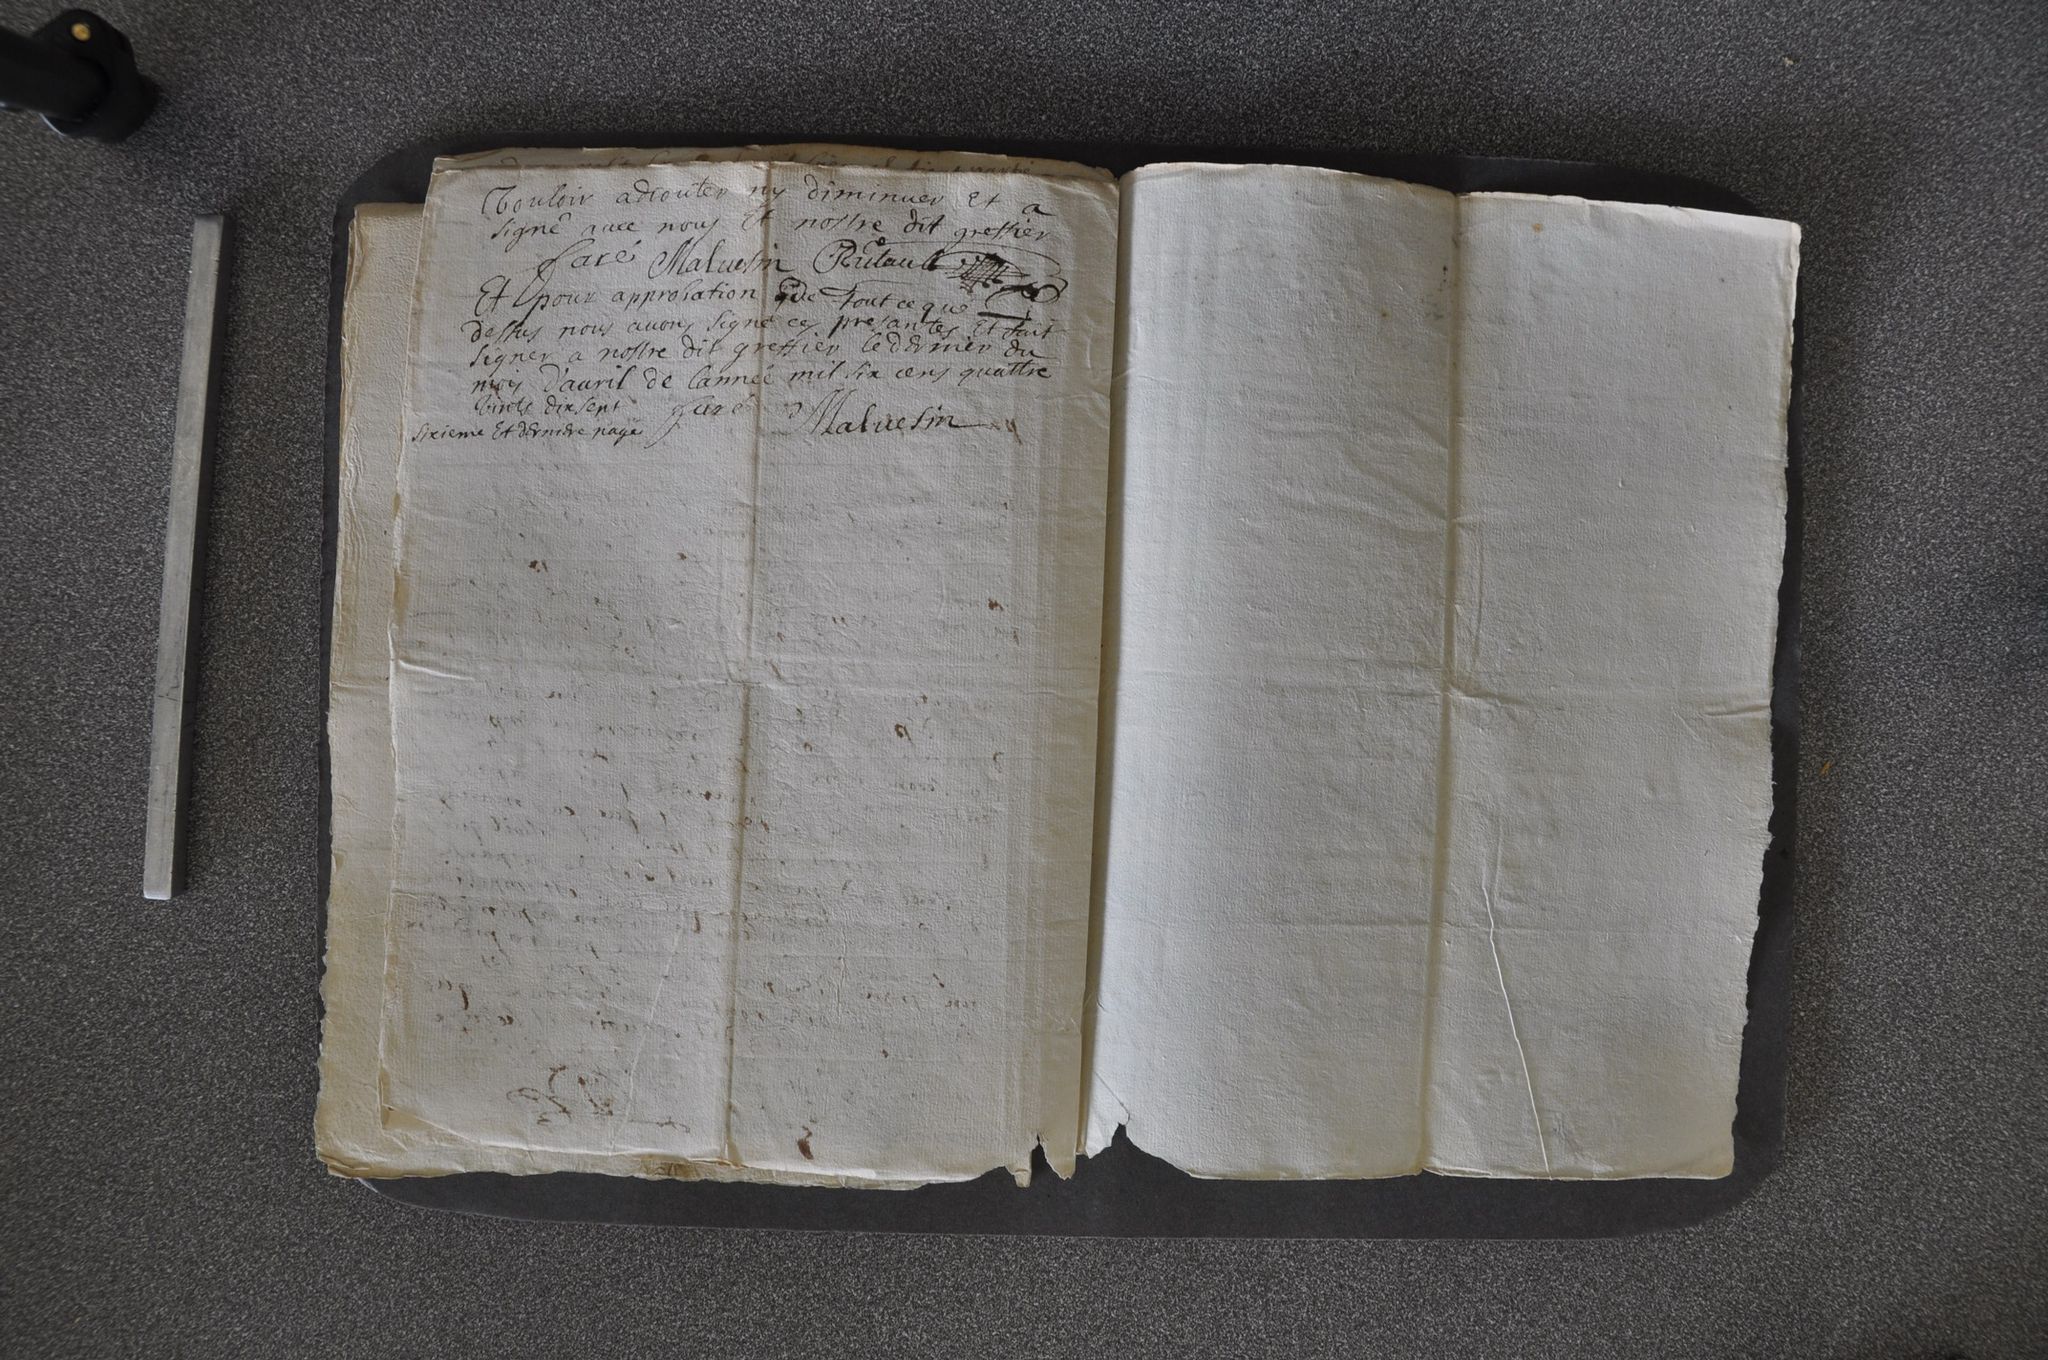 Vouloir adiouter ny diminuer Et a
signé auec nous Et nostre dit greffier
faré Maluesin Rulault
Et pour approbation de tout ce que
dessus nous auons signé ces presantes Et fait
signer a nostre dit greffier le dernier du
mois d'auril de lanneé mil six cens quattre
vints dixsept faré Maluesin
sixieme Et derniere page